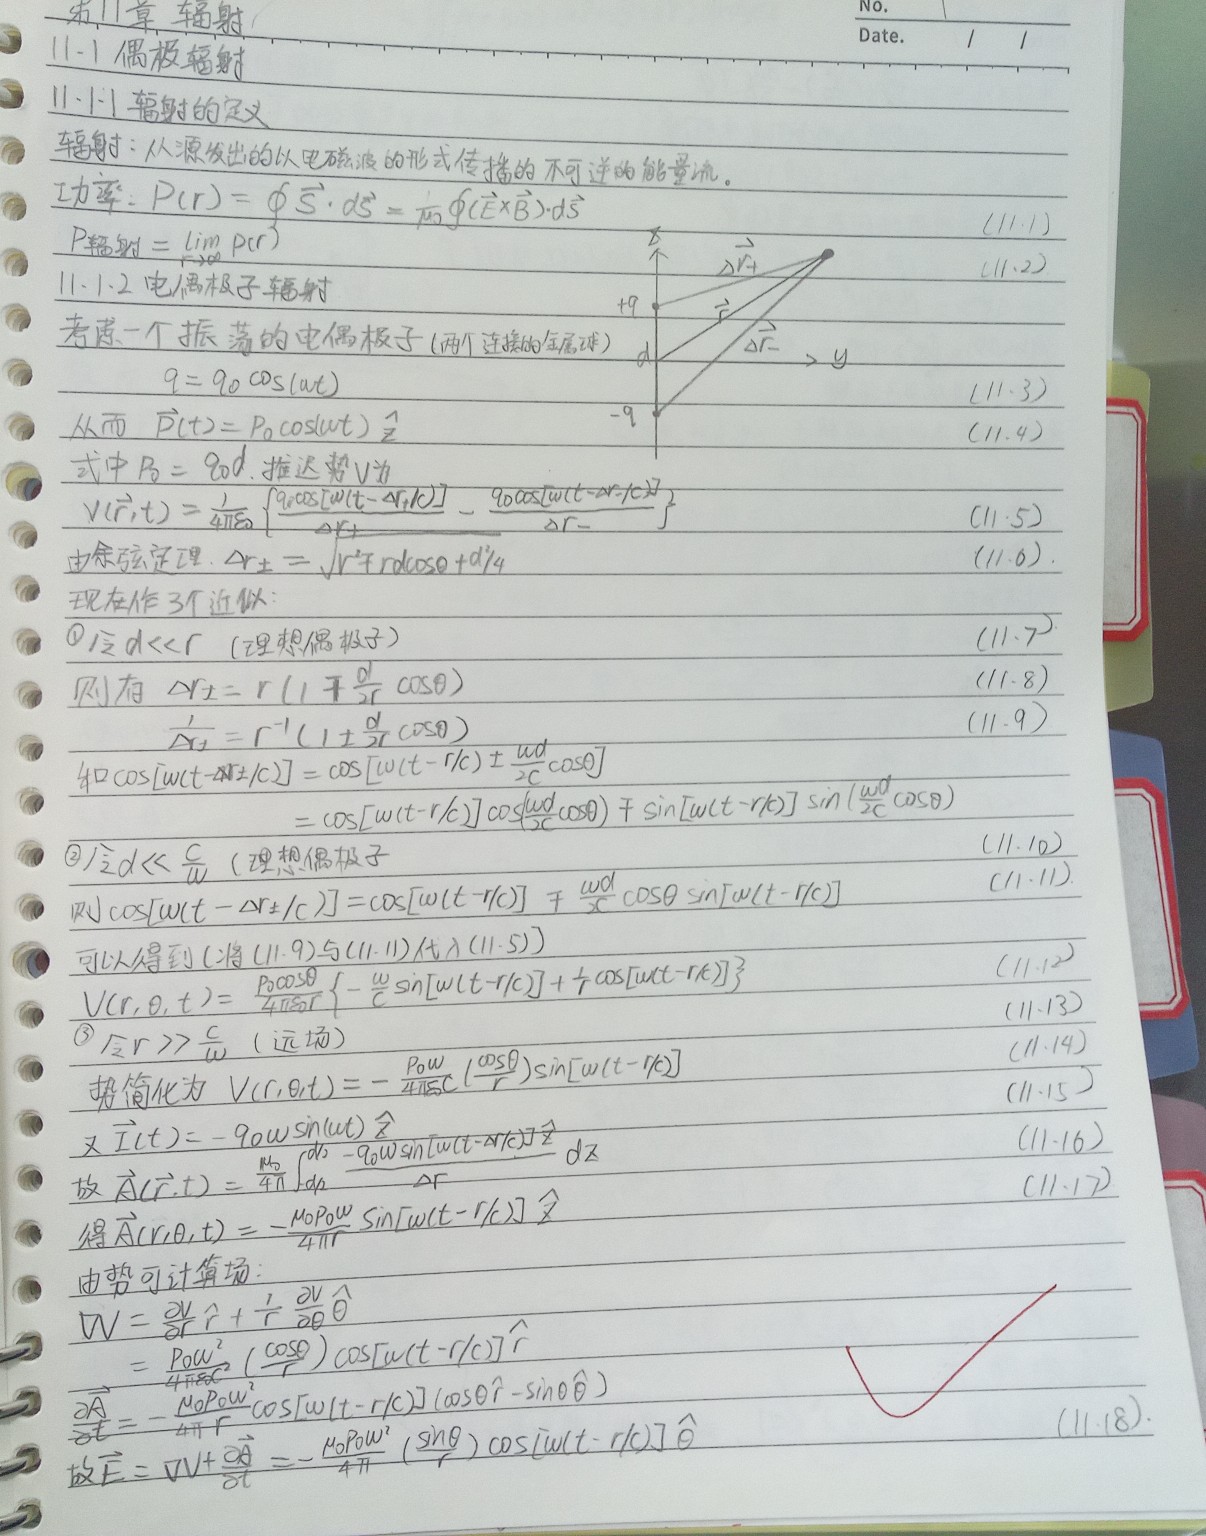 第11章 辐射
No.
Date. / /
11-1 偶极辐射
11.1.1 辐射的定义
辐射：从源发出的以电磁波的形式传播的不可逆的能量流。
功率：P(r) = ∮S⃗·dS⃗ = 1/μ₀ ∮(E⃗×B⃗)·dS⃗ (11.1)
P辐射 = lim r→∞ P(r) (11.2)
11.1.2 电偶极子辐射
考虑一个振荡的电偶极子(两个连接的金属球)
q = q₀cos(ωt) (11.3)
从而 P⃗(t) = P₀cos(ωt) ẑ (11.4)
z
Δr⃗₊
+q
r⃗
Δr⃗₋
d
y
-q
式中P₀ = q₀d. 推迟势V为
V(r⃗,t) = 1/4πε₀ {q₀cos[ω(t-Δr₊/c)]/Δr₊ - q₀cos[ω(t-Δr₋/c)]/Δr₋} (11.5)
由余弦定理. Δr± = √r²∓rdcosθ+d²/4 (11.6).
现在作3个近似:
①令d<<r (理想偶极子) (11.7)
则有 Δr± = r(1∓d/2r cosθ) (11.8)
1/Δr± = r⁻¹(1±d/2r cosθ) (11.9)
和cos[ω(t-Δr±/c)] = cos[ω(t-r/c)±ωd/2c cosθ]
= cos[ω(t-r/c)]cos(ωd/2c cosθ)∓sin[ω(t-r/c)]sin(ωd/2c cosθ)
②令d<<c/ω (理想偶极子 (11.10)
则cos[ω(t-Δr±/c)] = cos[ω(t-r/c)]∓ωd/2c cosθ sin[ω(t-r/c)] (11.11)
可以得到(将(11.9)与(11.11)代入(11.5))
V(r,θ,t) = P₀cosθ/4πε₀r {-ω/c sin[ω(t-r/c)]+1/r cos[ω(t-r/c)]} (11.12)
③令r>>c/ω (远场) (11.13)
势简化为 V(r,θ,t) = -P₀ω/4πε₀c (cosθ/r)sin[ω(t-r/c)] (11.14)
又I⃗(t) = -q₀ωsin(ωt) ẑ (11.15)
故A⃗(r⃗,t) = μ₀/4π ∫ d/2 d/2 -q₀ωsin[ω(t-Δr/c)]ẑ/Δr dz (11.16)
得A⃗(r,θ,t) = -μ₀P₀ω/4πr sin[ω(t-r/c)] ẑ (11.17)
由势可计算场:
∇V = ∂V/∂r r̂ + 1/r ∂V/∂θ θ̂
= P₀ω²/4πε₀c² (cosθ/r)cos[ω(t-r/c)]r̂
∂A⃗/∂t = -μ₀P₀ω²/4πr cos[ω(t-r/c)](cosθr̂-sinθθ̂)
故E⃗ = ∇V+∂A⃗/∂t = -μ₀P₀ω²/4π (sinθ/r)cos[ω(t-r/c)] θ̂ (11.18).